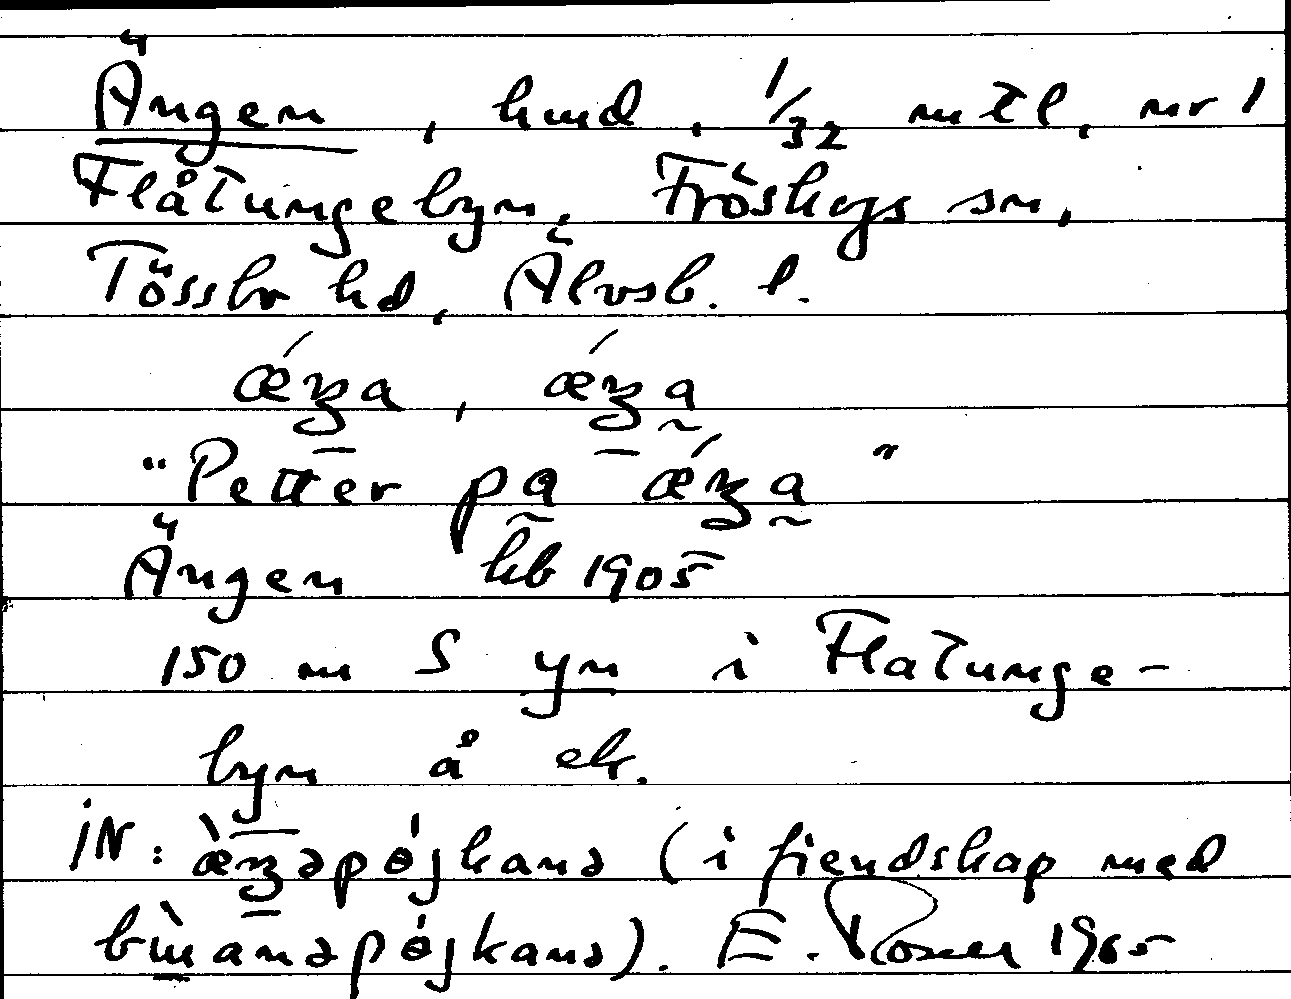 Ängen, hmd, 1/32 mtl, nr 1
Flåtungebyn, Fröskogs sn,
Tössbo hd, Älvsb. l.
ǽŋa, ǽŋa̰
"Petter pa̰ ǽŋa̰"
Ängen hb 1905
150 m S yn i Flatunge-
byn å ek.
IN: æ̀ŋəpɵ́jkanə (i fiendskap med
anəpɵ́jkanə). E. Rosell 1965